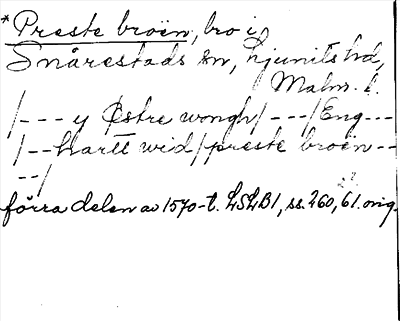 *Preste broën, bro i
Snårestads sn, Ljunits hd,
Malm. l.
/--- y Østre wongh/---/Eng---
/--hartt wid/preste broën--
--/
förra delen av 1570-t. LSLB1, ss. 260, 61. orig.